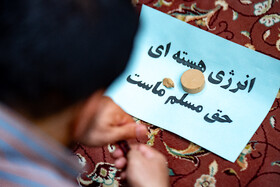 انرژی هسته ای
حق مسلم ماست